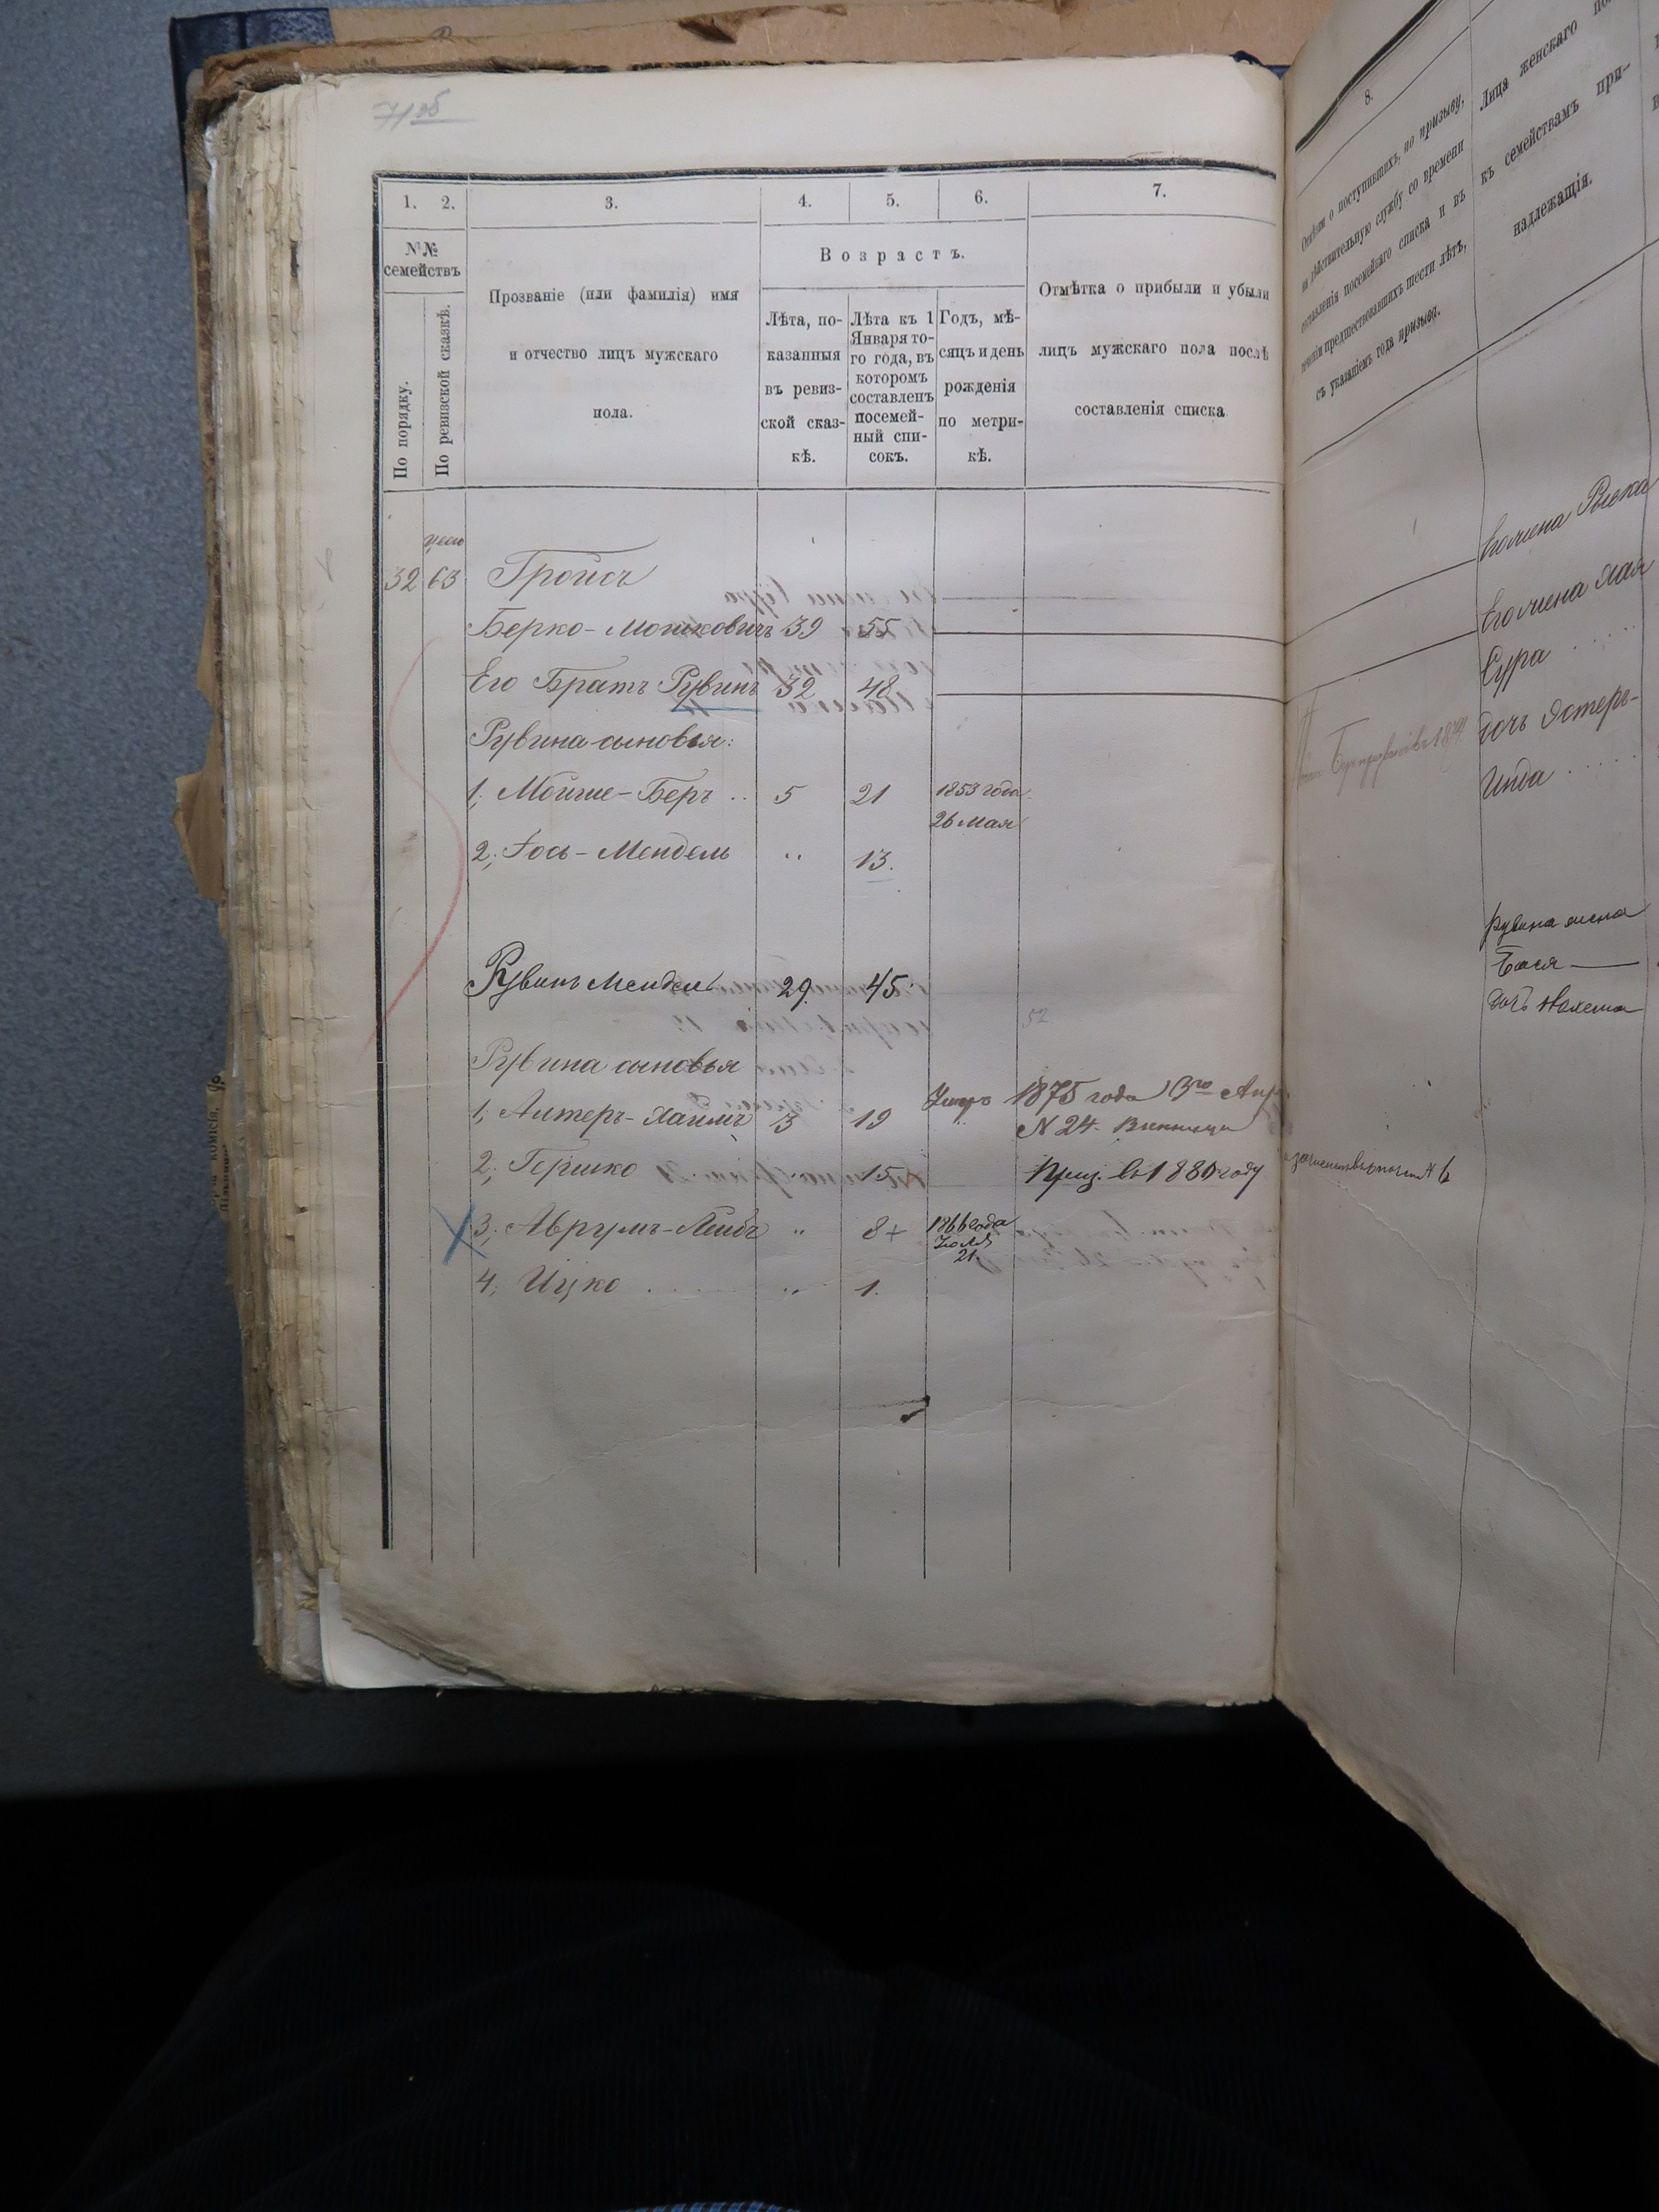 71 об
1. 2. 3. 4. 5. 6. 7.
№№ семействъ
По порядку.
По ревизской сказкѣ.
Прозваніе (или фамилія) имя
и отчество лицъ мужскаго
пола.
Возрастъ.
Лѣта, по-
казанныя
въ ревиз-
ской сказ-
кѣ.
Лѣта къ 1
Января то-
го года, въ
которомъ
составленъ
посемей-
ный спи-
сокъ.
Годъ, мѣ-
сяцъ и день
рожденія
по метри-
кѣ.
Отмѣтка о прибыли и убыли
лицъ мужскаго пола послѣ
составленія списка
32 63 Гройсъ
Берко-Мошковичъ 39 55
Его Братъ Рувинъ 32 48
Рувина сыновья:
1, Мойше-Беръ .. 5 21 1853 года
26 Мая
2, Іось-Мендель " 13.
Рувинъ Мендель 29. 45
52
Рувина сыновья
1, Алтеръ-Хаимъ 3 19 Умеръ 1875 года 13го Апр.
N 24. Винница
2, Гершко 15 Приз. въ 1880 году
3, Аврумъ-Лейбъ " 8+ 1866 года
Іюля
21
4, Ицко . . . . " 1.
8.
о поступившихъ, по призыву,
на дѣйствительную службу со времени
составленія посемейнаго списка и въ
теченіи предшествовавшихъ шести лѣтъ,
съ указаніемъ года призыва.
Лица женскаго
къ семействамъ при-
надлежащія.
Его жена Ривка
Его жена Хая
Сура
дочь Эстеръ-
Инда
Рувина жена
Бася
дочь
N 6